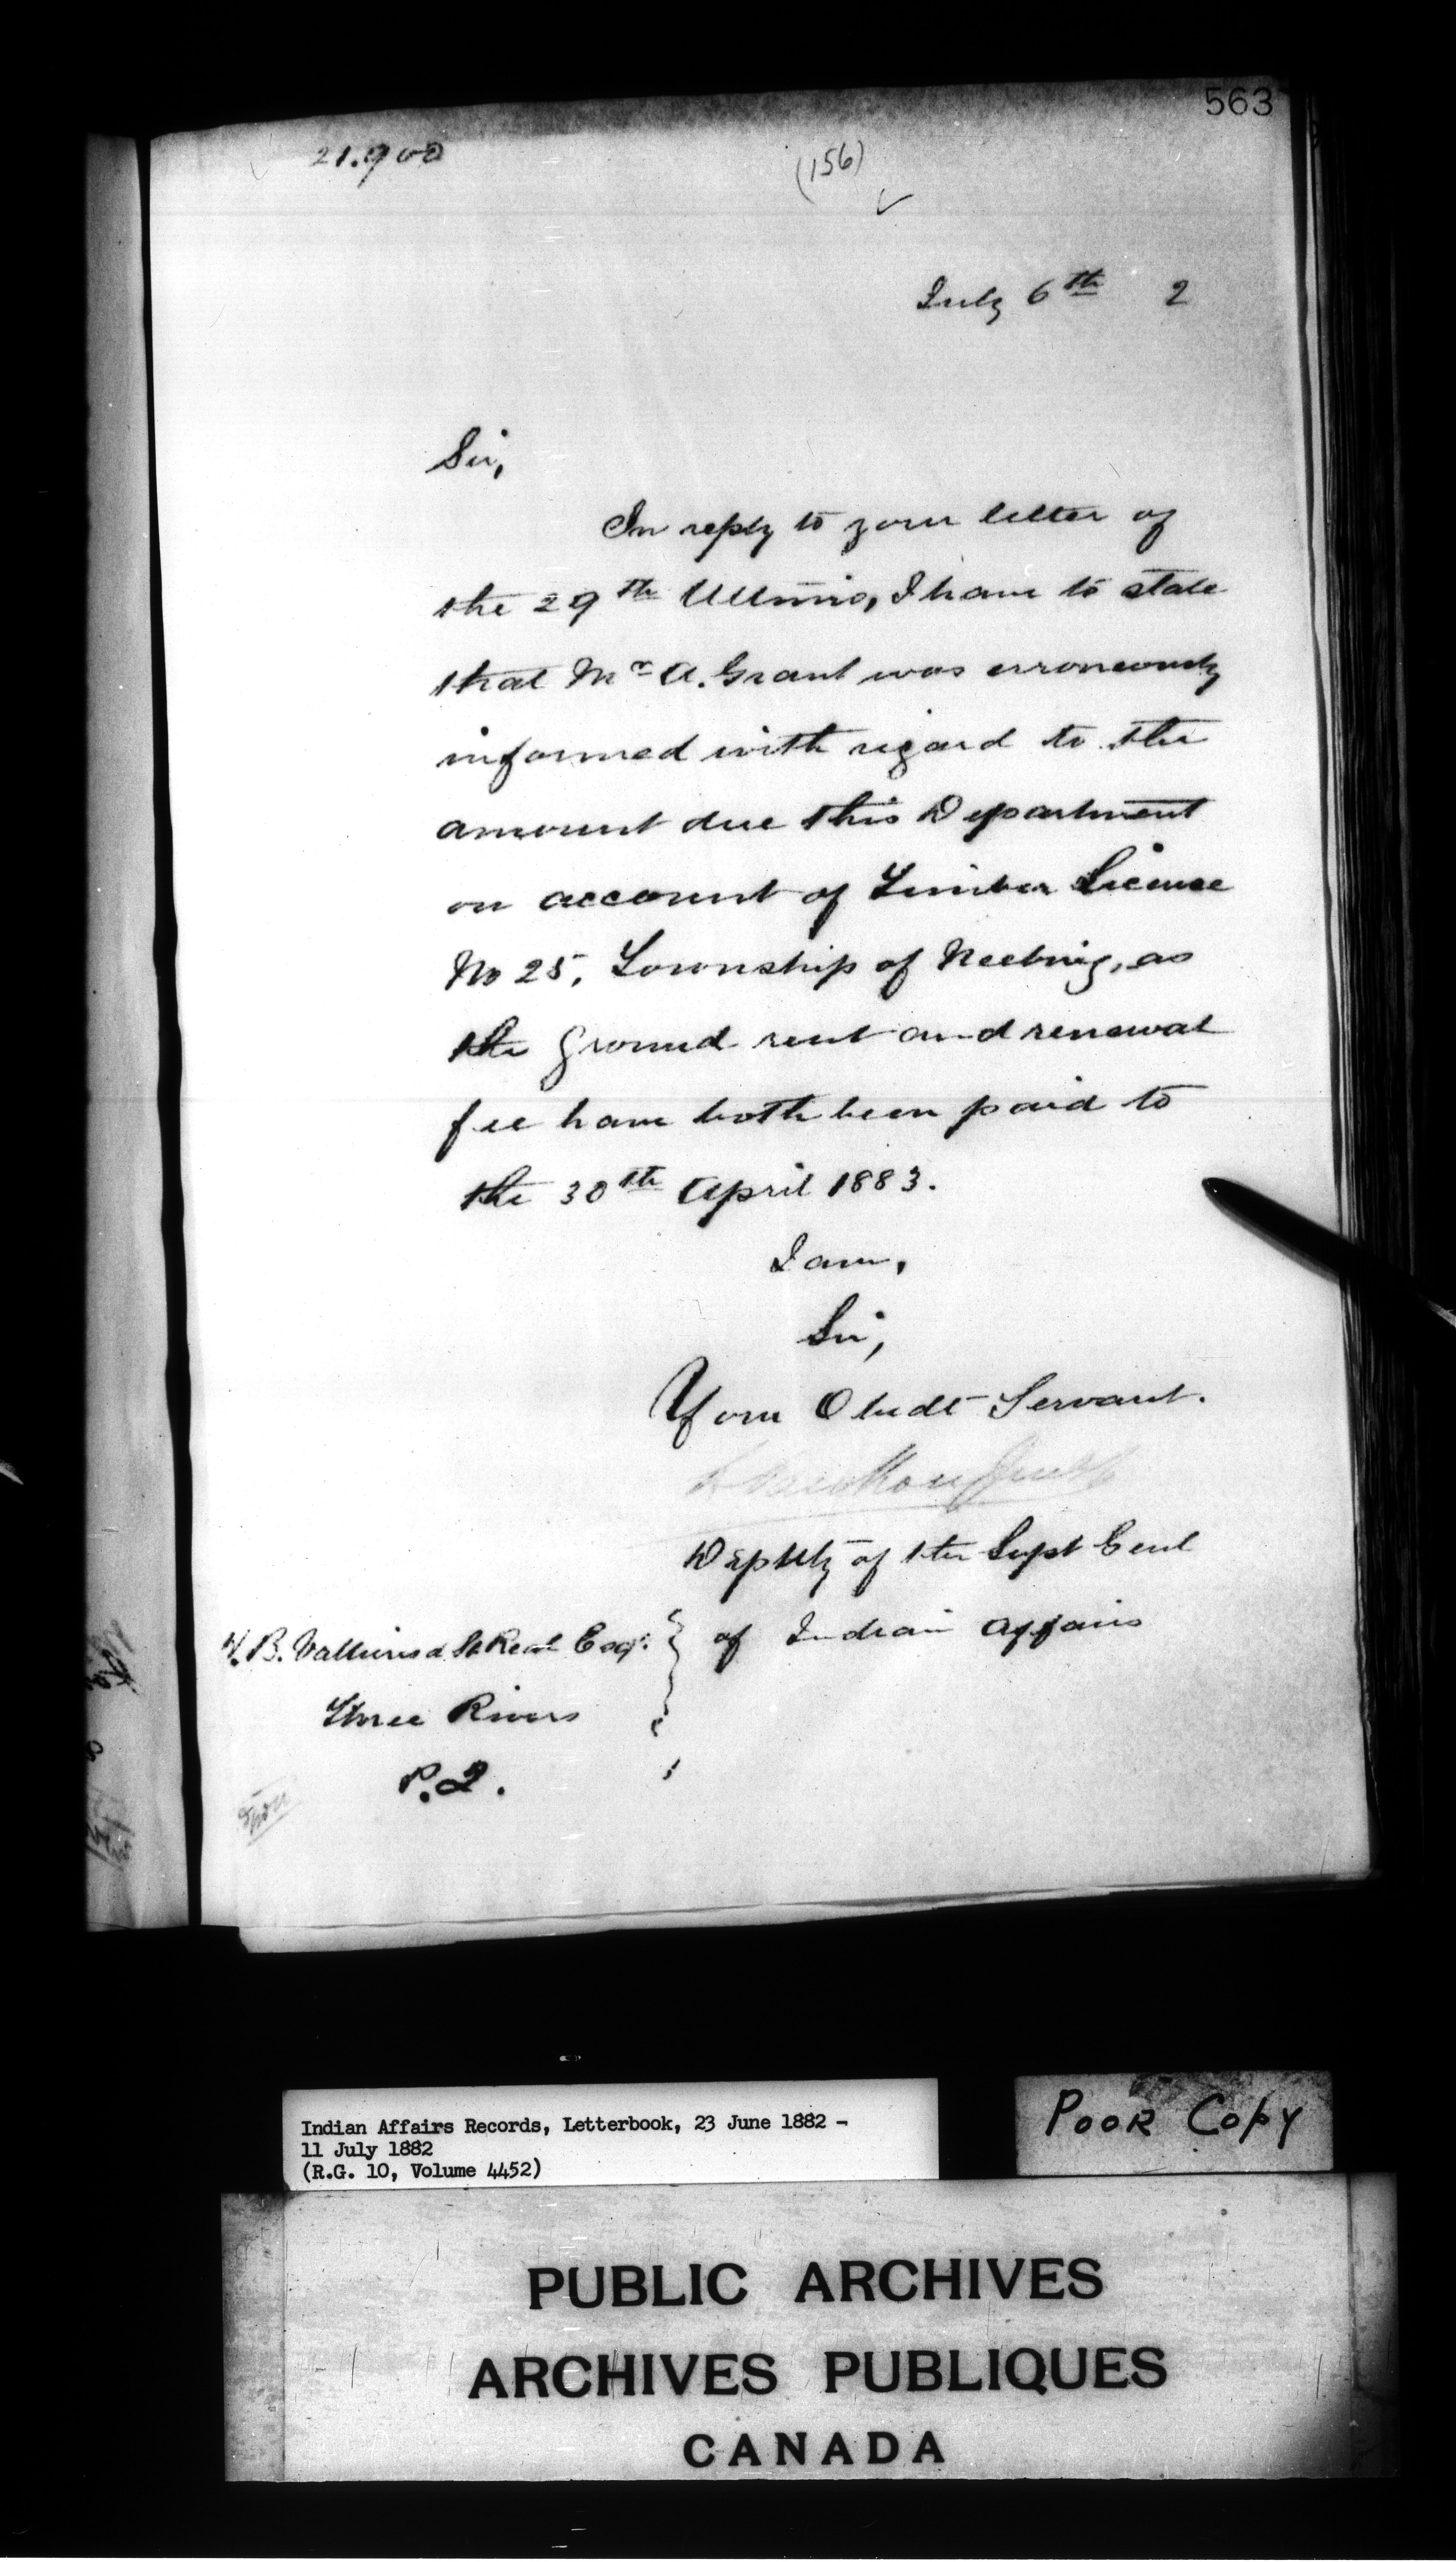 563
21.900
(156)
July 6th 2
Sir,
In reply to your letter of
the 29th Ultimo, I have to state
that Mr A. Grant was erroneously
informed with regard to the
amount due this Department
on account of Timber License
No 25, Township of Neebing, as
the ground rent and renewal
fee have both been paid to
the 30th April 1883.
I am,
Sir,
Your Obedt Servant.
Deputy of the Supt Genl
of Indian Affairs
St Real Esqr.
Three Rivers
P.Q.
Indian Affairs Records, Letterbook, 23 June 1882 -
11 July 1882
(R.G. 10, Volume 4452)
POOR COPY
PUBLIC ARCHIVES
ARCHIVES PUBLIQUES
CANADA